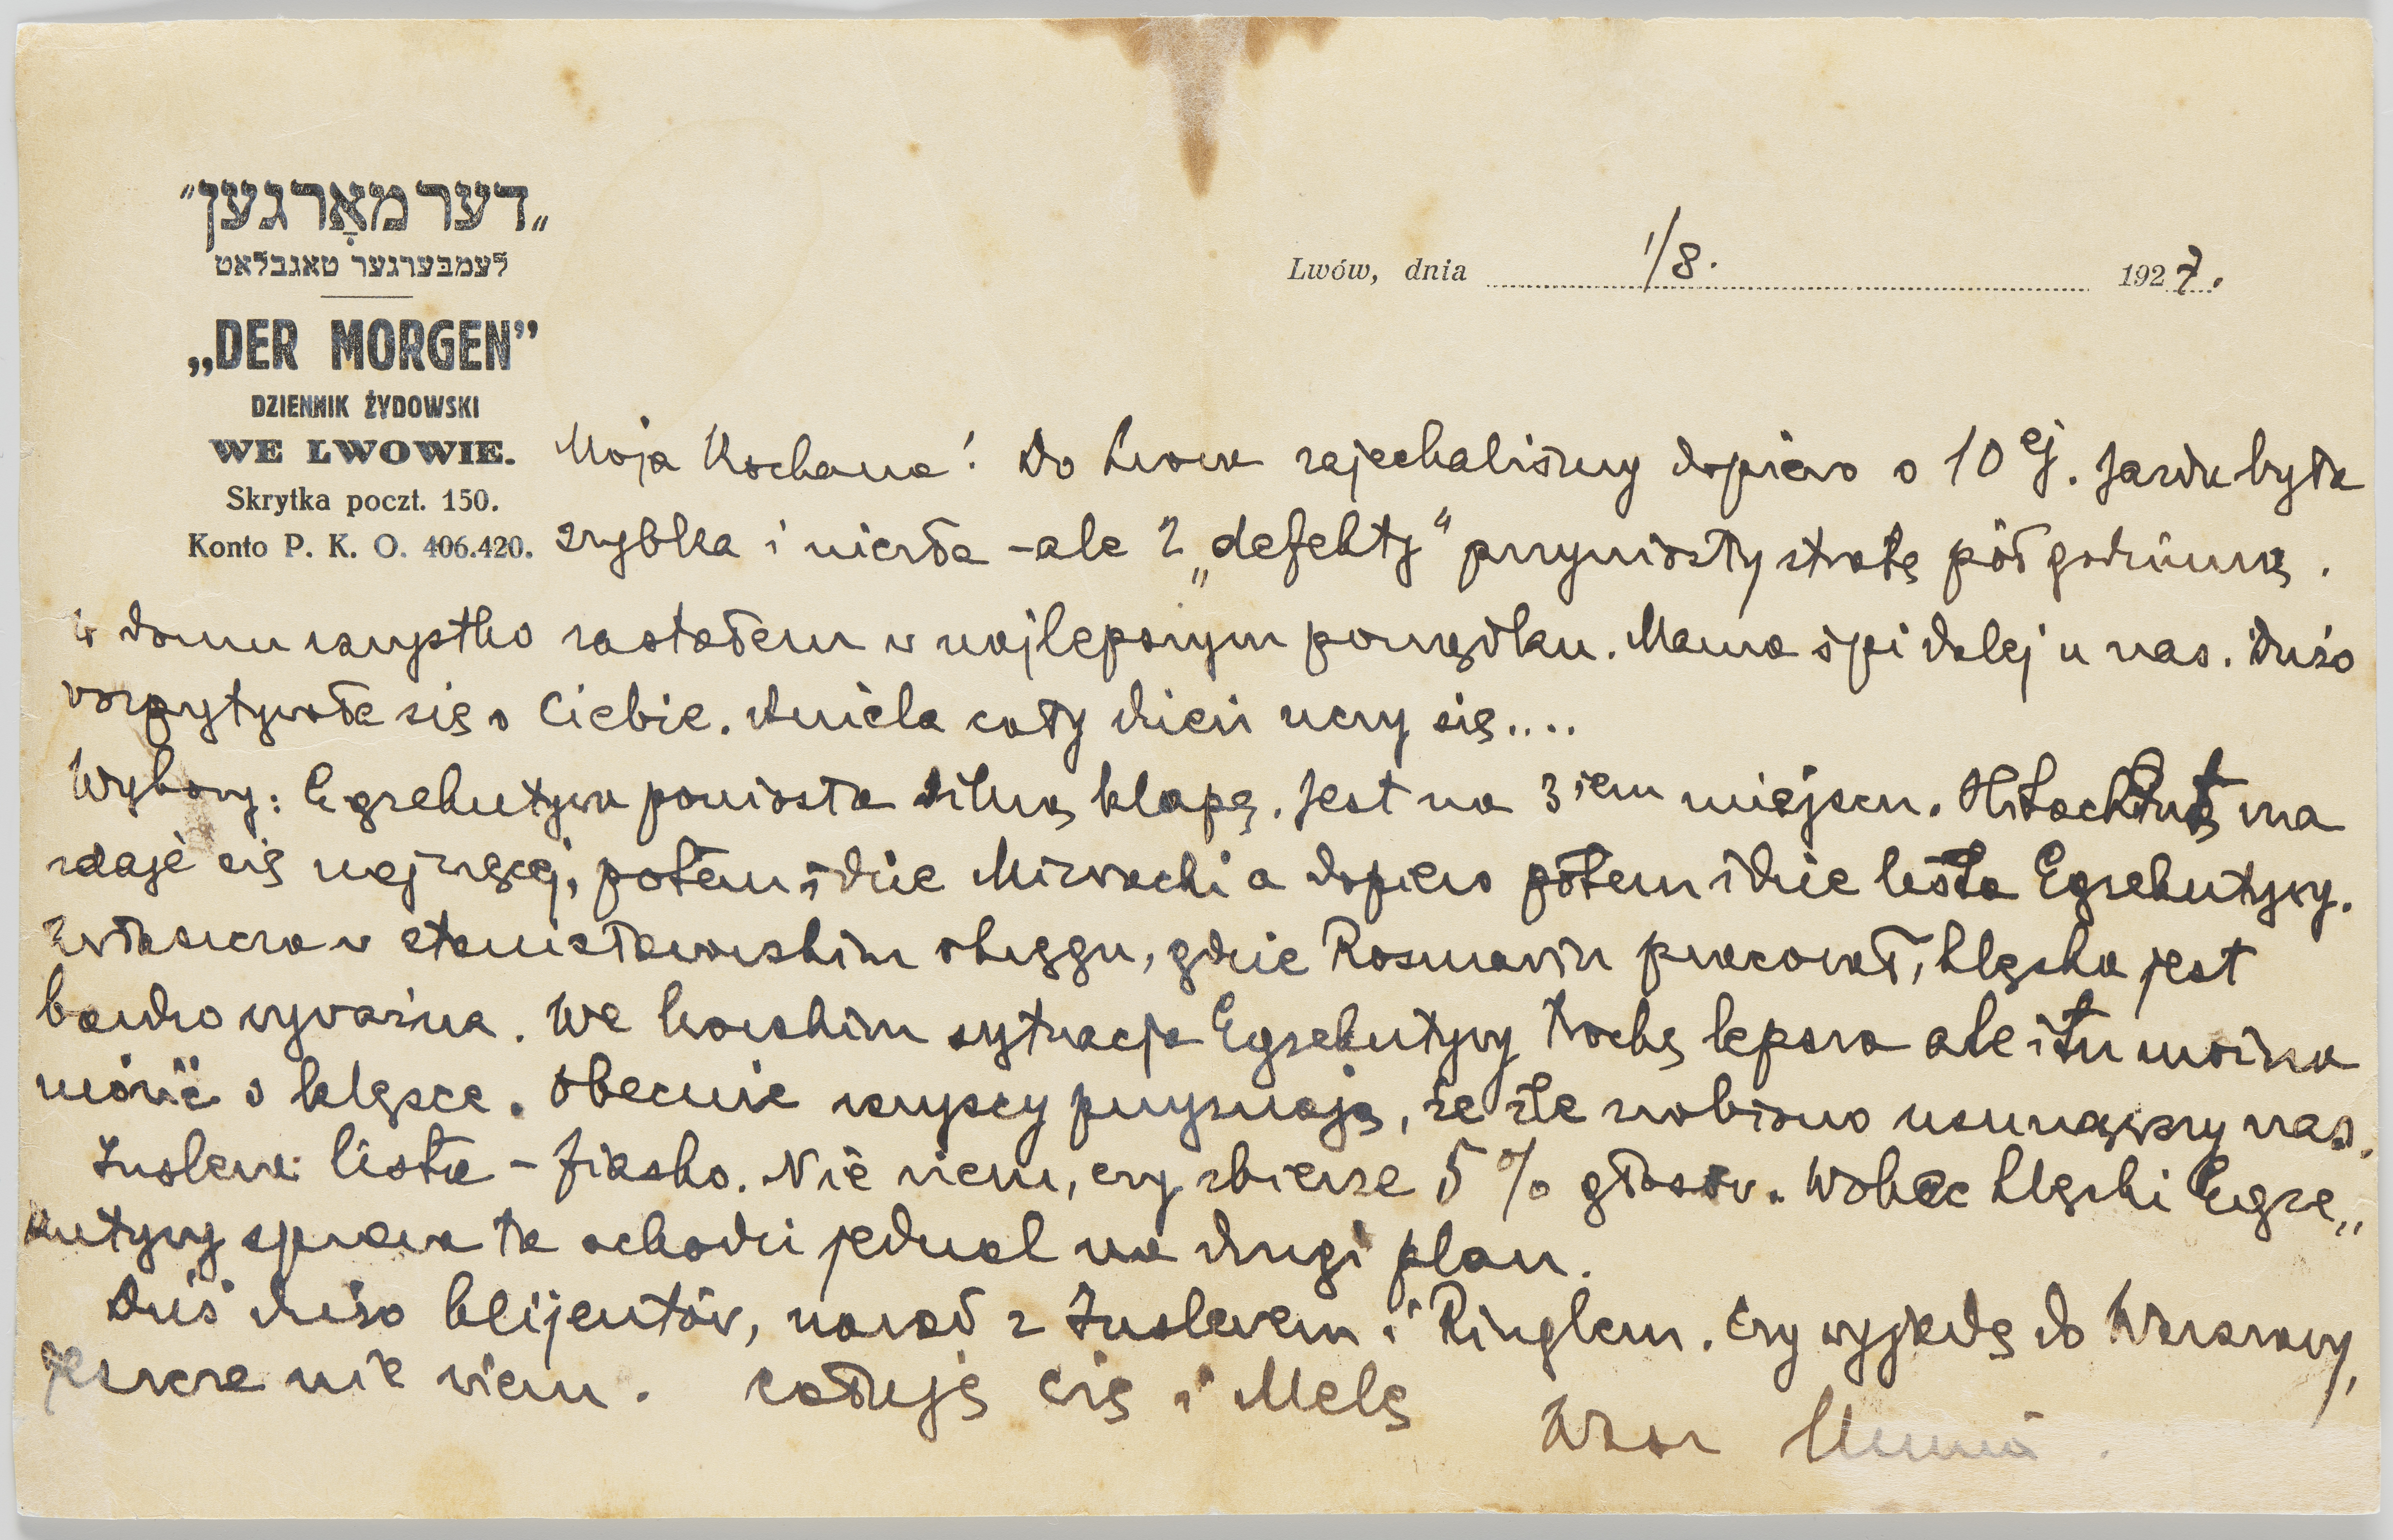 „דער מאָרגען"
לעמבערגער טאגבלאט
„DER MORGEN"
DZIENNIK ŻYDOWSKI
WE LWOWIE.
Skrytka poczt. 150.
Konto P. K. O. 406.420.
Lwów, dnia 1/8. 1927.
Moja Kochana! Do Lwowa zajechaliśmy dopiero o 10ej. Jazda była
szybka i miła – ale 2 „defekty" przyniosły stratę pół godzinną.
W domu wszystko zastałem w najlepszym porządku. Mama śpi dalej u nas. Dużo
rozpytywała się o Ciebie. Aniela cały dzień uczy się....
Wybory: Egzekutywa poniosła silną klapę. Jest na 3iem miejscu. Hitachduth ma
zdaje się najwięcej, potem idzie Mizrachi a dopiero potem idzie lista Egzekutywy.
Zwłaszcza w stanisławowskim okręgu, gdzie Rosmarin pracował, klęska jest
bardzo wyraźna. We lwowskim sytuacja Egzekutywy trochę lepsza ale i tu można
mówić o klęsce. Obecnie wszyscy przyznają, że źle zrobiono usunąwszy nas.
Inslera lista – fiasko. Nie wiem, czy zbierze 5% głosów. Wobec klęski Egze„
kutywy sprawa ta schodzi jednak na drugi plan.
Dziś dużo klijentów, narad z Inslerem i Ringlem. Czy wyjadę do Warszawy,
jeszcze nie wiem. Całuję Cię i Melę
Wasz